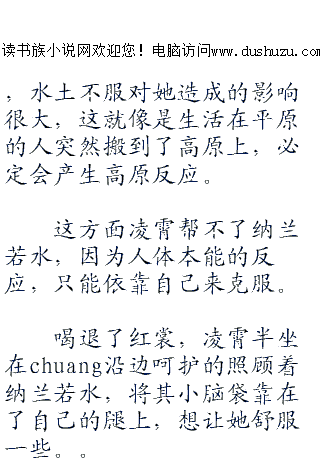 读书族小说网欢迎您！电脑访问www.dushuzu.com
，水土不服对她造成的影响
很大，这就像是生活在平原
的人突然搬到了高原上，必
定会产生高原反应。
这方面凌霄帮不了纳兰
若水，因为人体本能的反
应，只能依靠自己来克服。
喝退了红裳，凌霄半坐
在chuang沿边呵护的照顾着
纳兰若水，将其小脑袋靠在
了自己的腿上，想让她舒服
一些。。